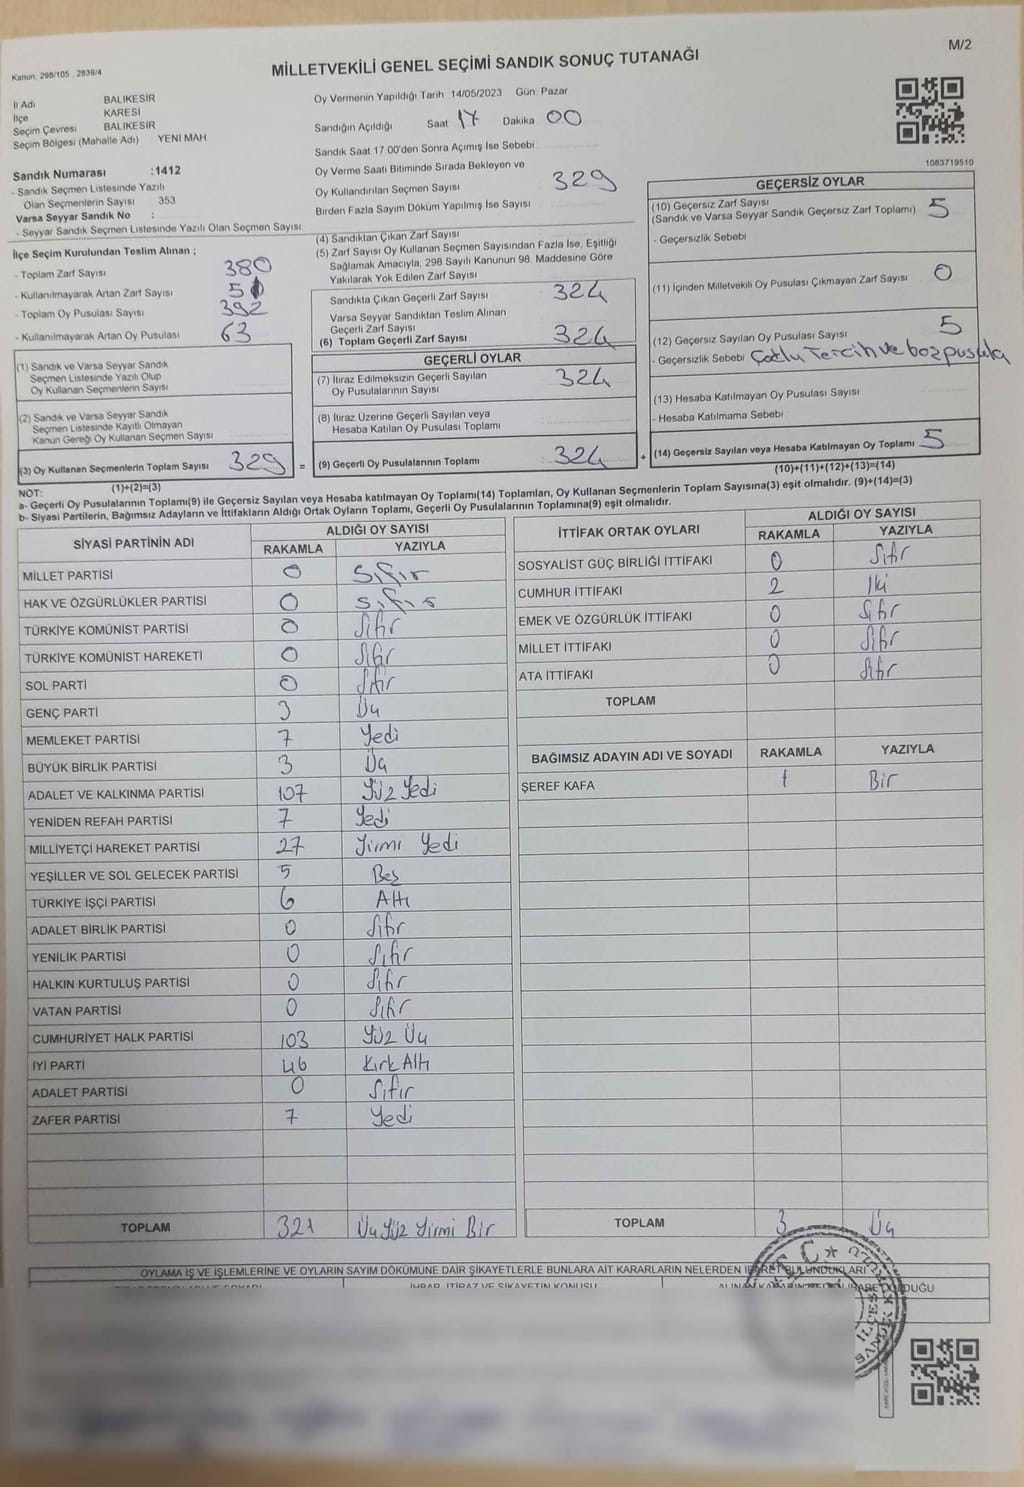 M/2
Kanun, 298/105 , 2839/4
MİLLETVEKİLİ GENEL SEÇİMİ SANDIK SONUÇ TUTANAĞI
İl Adı BALIKESİR
İlçe KARESİ
Seçim Çevresi BALIKESİR
Seçim Bölgesi (Mahalle Adı) YENİ MAH
Sandık Numarası :1412
- Sandık Seçmen Listesinde Yazılı
Olan Seçmenlerin Sayısı 353
Varsa Seyyar Sandık No :
- Seyyar Sandık Seçmen Listesinde Yazılı Olan Seçmen Sayısı
İlçe Seçim Kurulundan Teslim Alınan ;
- Toplam Zarf Sayısı 380
- Kullanılmayarak Artan Zarf Sayısı 51
- Toplam Oy Pusulası Sayısı 392
- Kullanılmayarak Artan Oy Pusulası 63
(1) Sandık ve Varsa Seyyar Sandık
Seçmen Listesinde Yazılı Olup
Oy Kullanan Seçmenlerin Sayısı
(2) Sandık ve Varsa Seyyar Sandık
Seçmen Listesinde Kayıtlı Olmayan
Kanun Gereği Oy Kullanan Seçmen Sayısı
(3) Oy Kullanan Seçmenlerin Toplam Sayısı 329 =
(1)+(2)=(3)
Oy Vermenin Yapıldığı Tarih 14/05/2023 Gün Pazar
Sandığın Açıldığı Saat 17 Dakika 00
Sandık Saat 17.00'den Sonra Açımış İse Sebebi
Oy Verme Saati Bitiminde Sırada Bekleyen ve
Oy Kullandırılan Seçmen Sayısı 329
Birden Fazla Sayım Döküm Yapılmış İse Sayısı
(4) Sandıktan Çıkan Zarf Sayısı
(5) Zarf Sayısı Oy Kullanan Seçmen Sayısından Fazla İse, Eşitliği
Sağlamak Amacıyla, 298 Sayılı Kanunun 98. Maddesine Göre
Yakılarak Yok Edilen Zarf Sayısı
Sandıkta Çıkan Geçerli Zarf Sayısı 324
Varsa Seyyar Sandıktan Teslim Alınan
Geçerli Zarf Sayısı
(6) Toplam Geçerli Zarf Sayısı 324
GEÇERLİ OYLAR
(7) İtiraz Edilmeksizin Geçerli Sayılan
Oy Pusulalarının Sayısı 324
(8) İtiraz Üzerine Geçerli Sayılan veya
Hesaba Katılan Oy Pusulası Toplamı
(9) Geçerli Oy Pusulalarının Toplamı 324 +
1083719510
GEÇERSİZ OYLAR
(10) Geçersiz Zarf Sayısı
(Sandık ve Varsa Seyyar Sandık Geçersiz Zarf Toplamı) 5
- Geçersizlik Sebebi
(11) İçinden Milletvekili Oy Pusulası Çıkmayan Zarf Sayısı 0
(12) Geçersiz Sayılan Oy Pusulası Sayısı 5
- Geçersizlik Sebebi Çoklu Tercih ve boz pusula
(13) Hesaba Katılmayan Oy Pusulası Sayısı
- Hesaba Katılmama Sebebi
(14) Geçersiz Sayılan veya Hesaba Katılmayan Oy Toplamı 5
(10)+(11)+(12)+(13)=(14)
NOT:
a- Geçerli Oy Pusulalarının Toplamı(9) ile Geçersiz Sayılan veya Hesaba katılmayan Oy Toplamı(14) Toplamları, Oy Kullanan Seçmenlerin Toplam Sayısına(3) eşit olmalıdır. (9)+(14)=(3)
b- Siyasi Partilerin, Bağımsız Adayların ve İttifakların Aldığı Ortak Oyların Toplamı, Geçerli Oy Pusulalarının Toplamına(9) eşit olmalıdır.
SİYASİ PARTİNİN ADI ALDIĞI OY SAYISI
RAKAMLA YAZIYLA
MİLLET PARTİSİ 0 Sıfır
HAK VE ÖZGÜRLÜKLER PARTİSİ 0 Sıfır
TÜRKİYE KOMÜNİST PARTİSİ 0 Sıfır
TÜRKİYE KOMÜNİST HAREKETİ 0 Sıfır
SOL PARTİ 0 Sıfır
GENÇ PARTİ 3 Üç
MEMLEKET PARTİSİ 7 Yedi
BÜYÜK BİRLİK PARTİSİ 3 Üç
ADALET VE KALKINMA PARTİSİ 107 Yüz Yedi
YENİDEN REFAH PARTİSİ 7 Yedi
MİLLİYETÇİ HAREKET PARTİSİ 27 Yirmi Yedi
YEŞİLLER VE SOL GELECEK PARTİSİ 5 Beş
TÜRKİYE İŞÇİ PARTİSİ 6 Altı
ADALET BİRLİK PARTİSİ 0 Sıfır
YENİLİK PARTİSİ 0 Sıfır
HALKIN KURTULUŞ PARTİSİ 0 Sıfır
VATAN PARTİSİ 0 Sıfır
CUMHURİYET HALK PARTİSİ 103 Yüz Üç
İYİ PARTİ 46 Kırk Altı
ADALET PARTİSİ 0 Sıfır
ZAFER PARTİSİ 7 Yedi
TOPLAM 321 Üç Yüz Yirmi Bir
İTTİFAK ORTAK OYLARI ALDIĞI OY SAYISI
RAKAMLA YAZIYLA
SOSYALİST GÜÇ BİRLİĞİ İTTİFAKI 0 Sıfır
CUMHUR İTTİFAKI 2 İki
EMEK VE ÖZGÜRLÜK İTTİFAKI 0 Sıfır
MİLLET İTTİFAKI 0 Sıfır
ATA İTTİFAKI 0 Sıfır
TOPLAM
BAĞIMSIZ ADAYIN ADI VE SOYADI RAKAMLA YAZIYLA
ŞEREF KAFA 1 Bir
TOPLAM 3 Üç
OYLAMA İŞ VE İŞLEMLERİNE VE OYLARIN SAYIM DÖKÜMÜNE DAİR ŞİKAYETLERLE BUNLARA AİT KARARLARIN NELERDEN İBARET BULUNDUKLARI
İHBAR, İTİRAZ VE ŞİKAYETİN KONUSU
T.C.
İLÇESİ
SANDIK